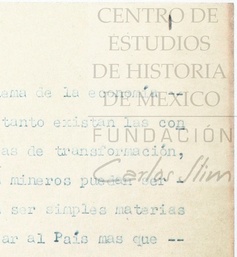 CENTRO DE
ESTUDIOS
DE HISTORIA
DE MEXICO
FUNDACIÓN
Carlos Slim
ema de la economía --
tanto existan las con
as de transformación,
s mineros puedan ser -
n ser simples materias
ar al País mas que --